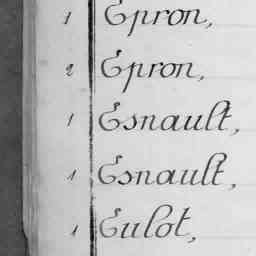 1 Epron,
2 Epron,
1 Esnault,
1 Esnault,
1 Eulot,